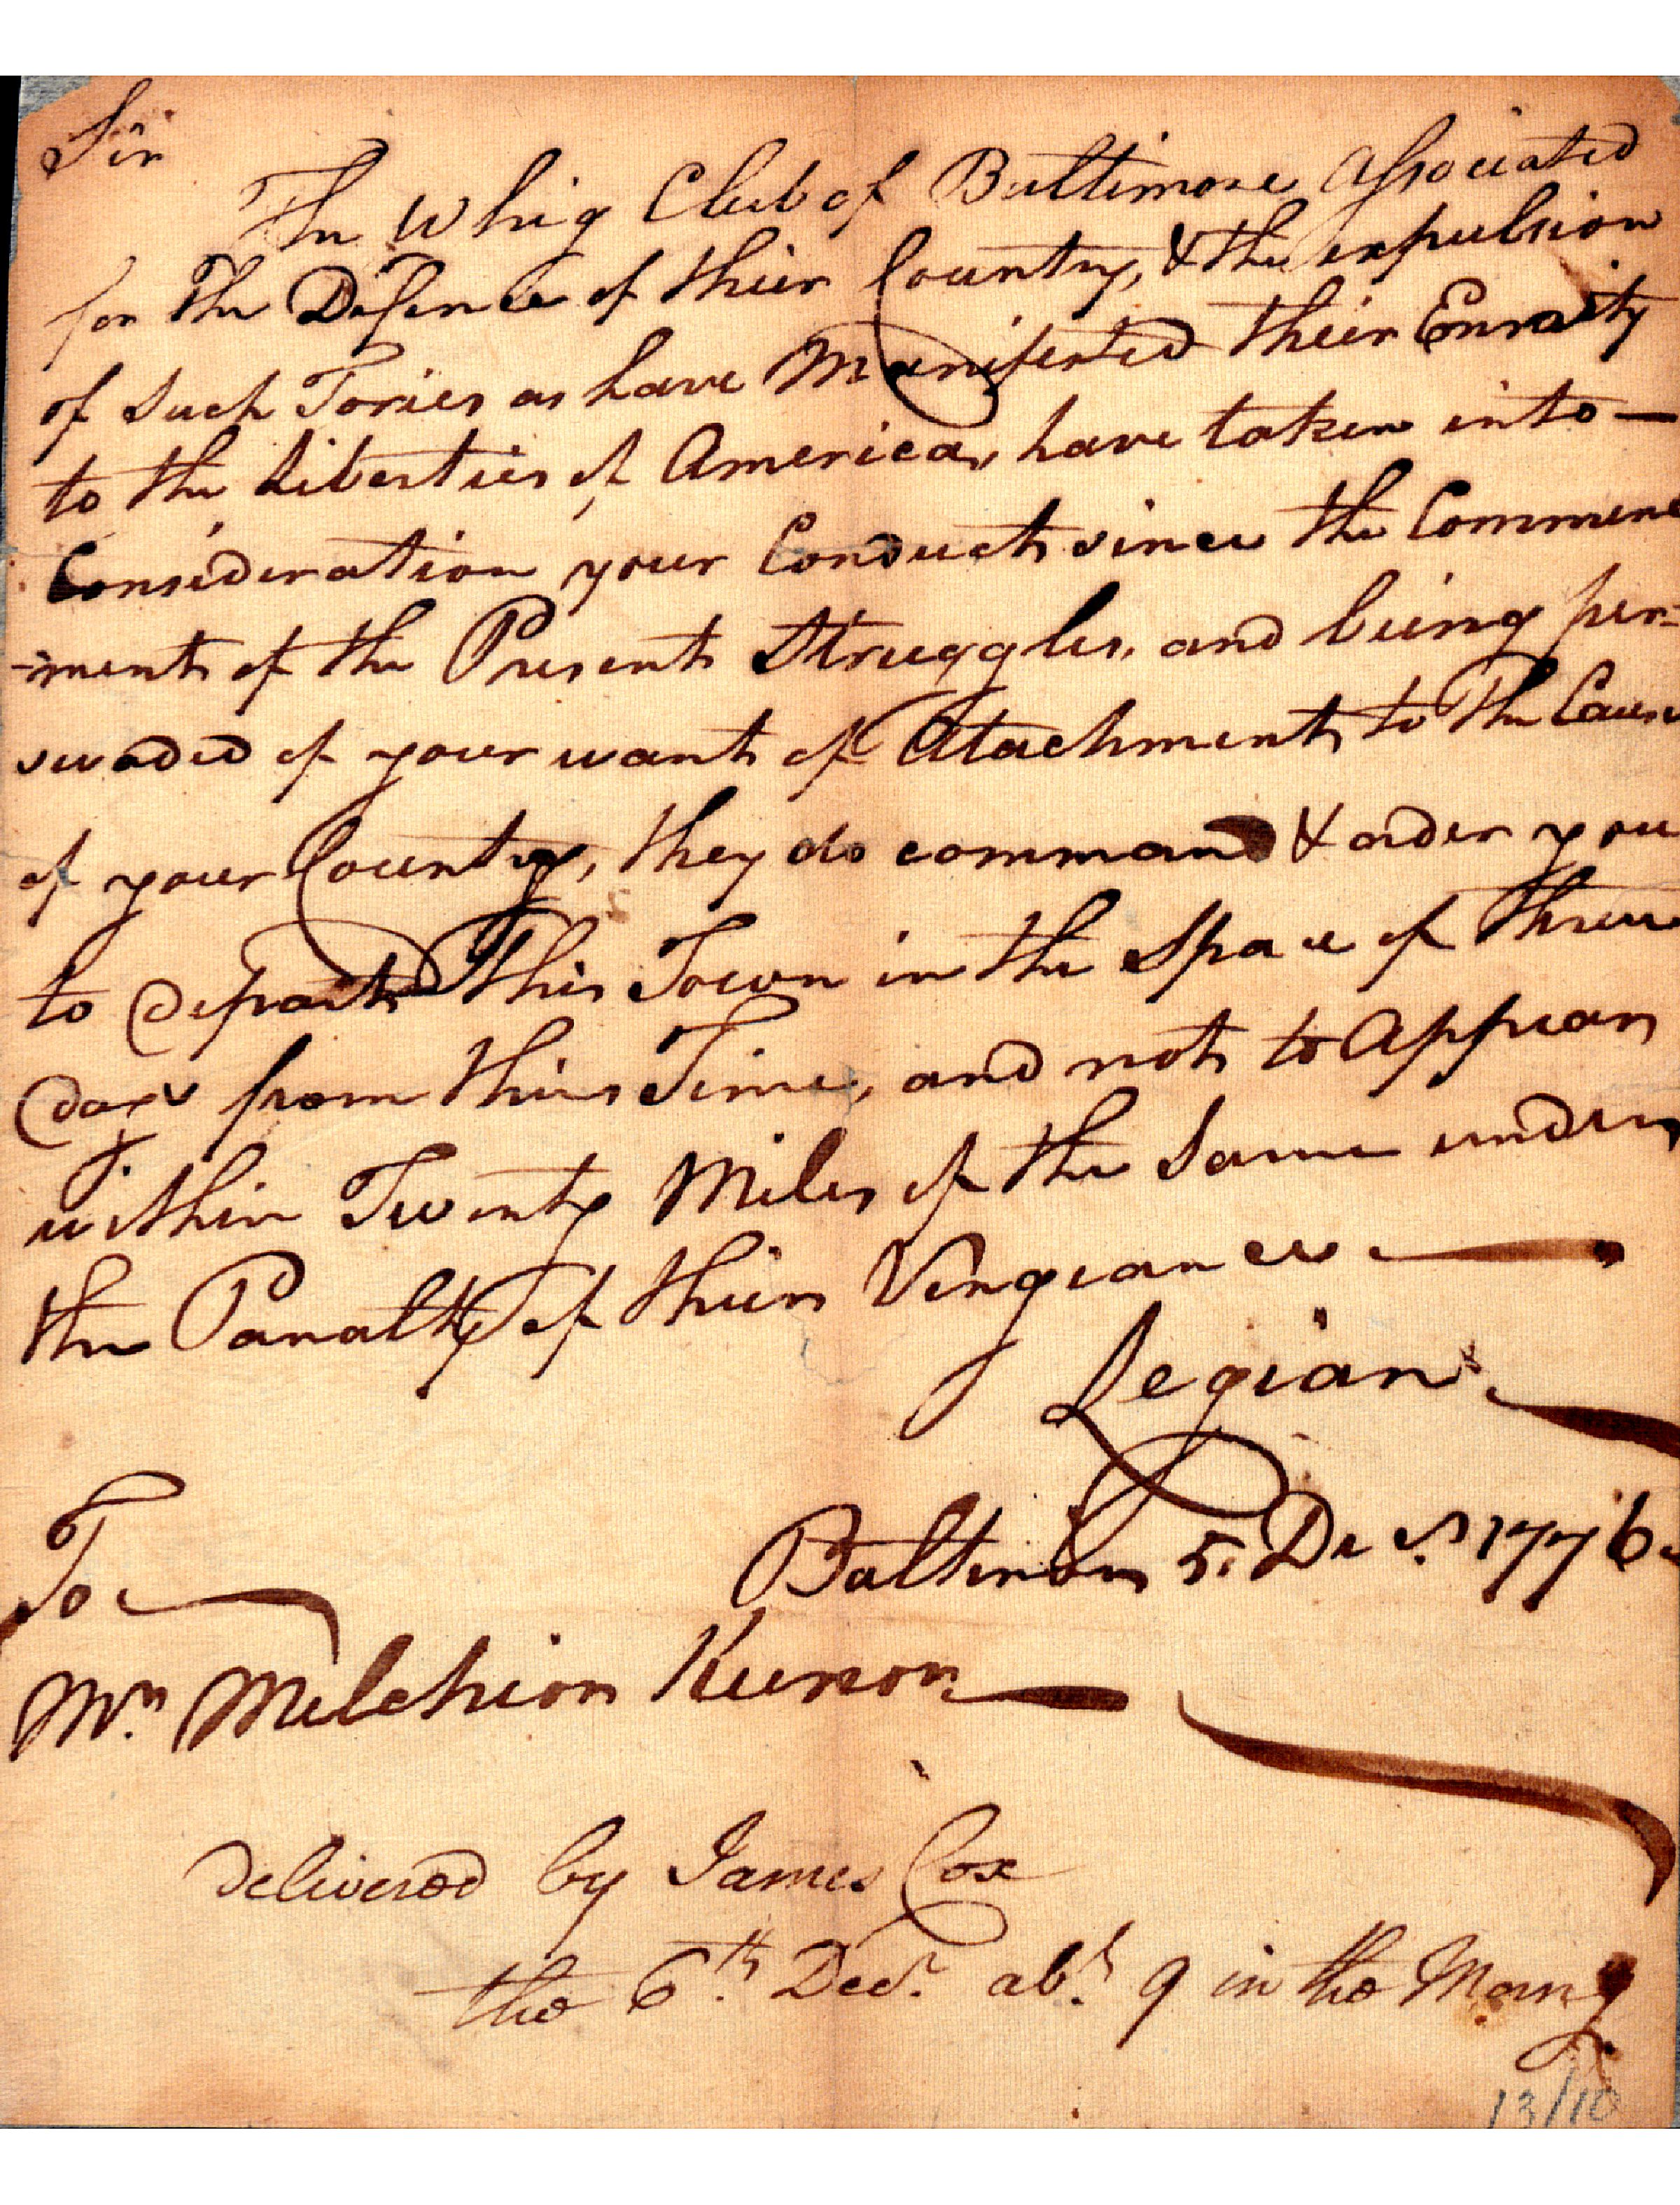 Sir
The Whig Club of Baltimore Associated
for the Defence of their Country, & the expulsion
of Such Tories as have Manifested their Enmity
to the Liberties of America, have taken into —
Consideration your Conduct since the Commence
-ment of the Present Struggles, and being per-
swaded of your want of Atachment to the Cause
of your Country, they do command & order you
to depart This Town in the Space of Three
days from this Time, and not to Appear
within Twenty Miles of the Same under
the Panalty of their Vengeance. —
Legion
Baltimore 5. Decr. 1776
To
Mr. Melchior Keener
delivered by James Cox
the 6th. Decr. abt. 9 in the Morng
13/10